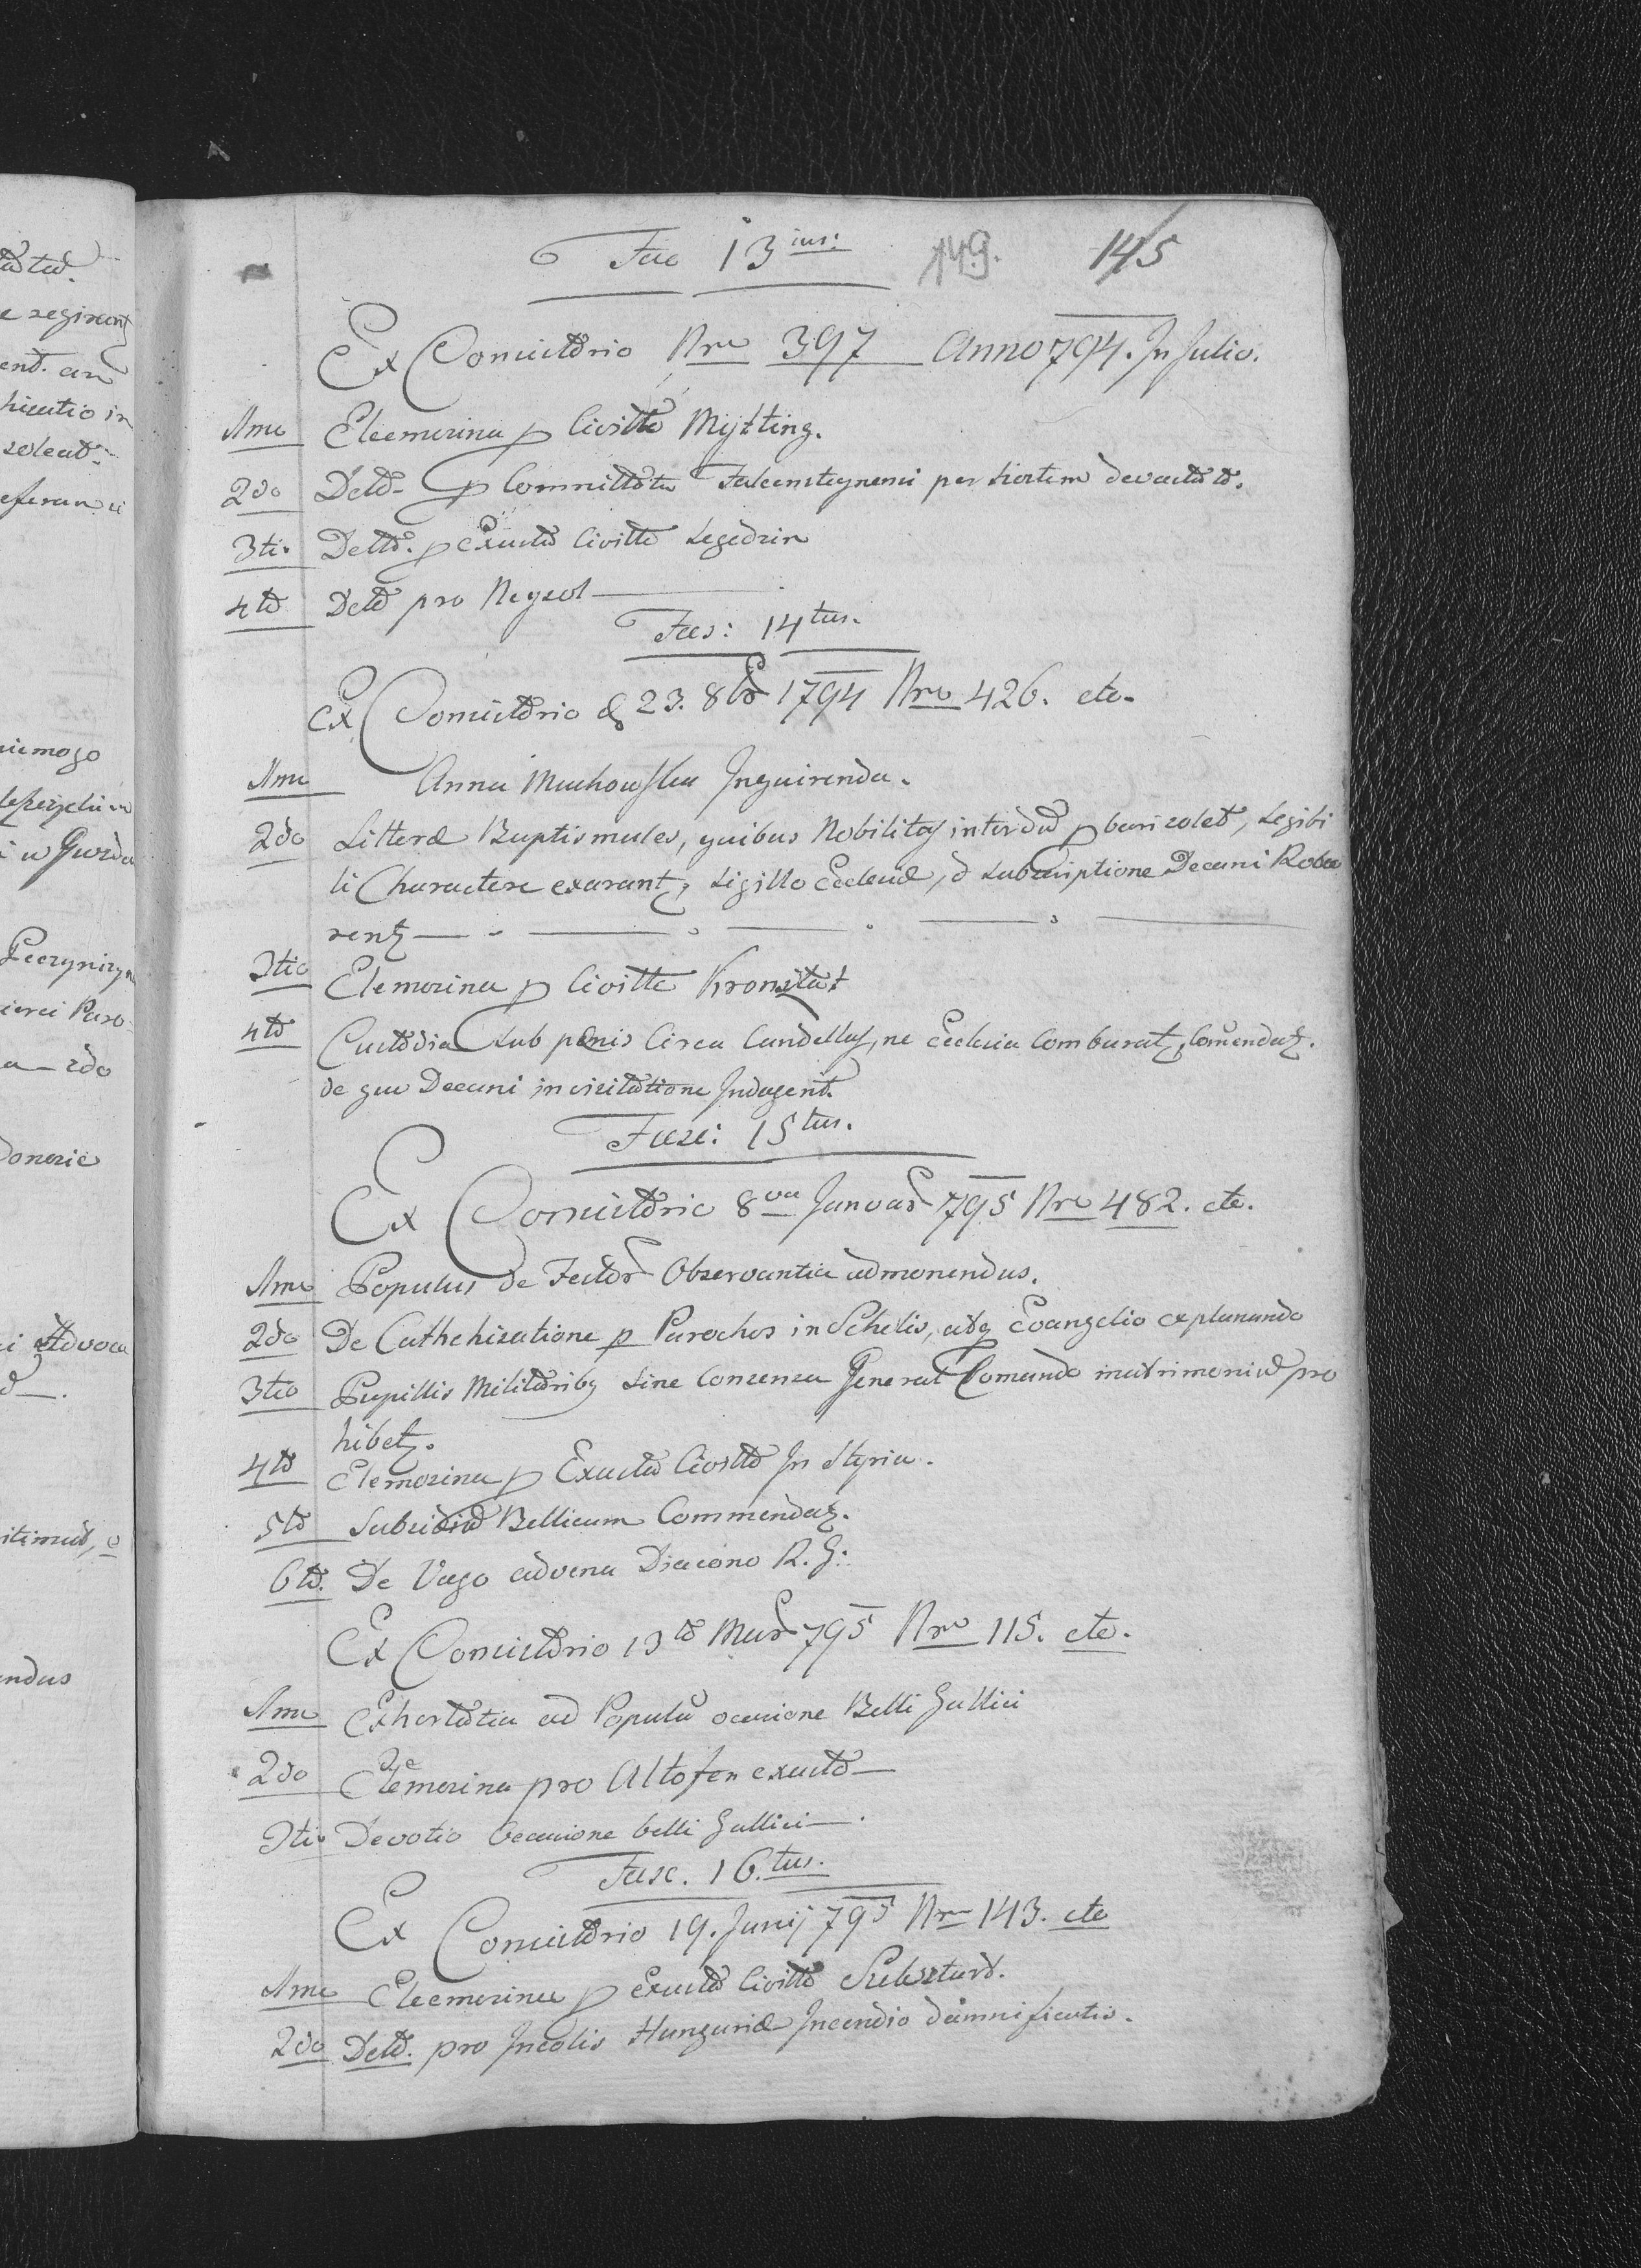 Fas 13ius: 149. 145
Ex Consistorio Nro 397 Anno 794. In Julio.
1mo Eleemosina p Civitte Myzling.
2do Detto p Committatu Falcensteynensi per hostem devastato.
3tio Detto. p Exusta Civitte Segedzin
4to Detto pro Neyzol
Fas: 14tus.
Ex Consistorio d 23. 8br 1794 Nro 426. etc.
1mo Anna Muchowska Inquirenda.
2do Litteræ Baptismales, quibus Nobilitas interdum pbari solet, Legibi
li Charactere exarant, Sigillo Ecclesiæ, et Subscriptione Decani Robo
rent
3tio Elemosina p Civitte Kronstat
4to Custodia Sub pænis Circa Candellas, ne Ecclesia Comburat, Comendat.
de qua Decani in visitatione Indagent.
Fasc: 15tus.
Ex Consistorio 8va Januar 795 Nro 482. etc.
1mo Populus de Festor Observantia admonendus.
2do De Cathehisatione p Parochos in Scholis, atq Evangelio explanando
3tio Pupillis Militaribq Sine Consensu General Comando matrimoniu pro
hibet.
4to Elemosina p Exusta Civitte In Styria.
5to Subsidiu Bellicum Commendat.
6to. De Vago advena Diacono R. G:
Ex Consistorio 13to Mar 795 Nro 115. etc.
1mo Exhortatia ad Populu occasione Belli Gallici
2do Eleemosina pro Altofen exusto
3tio Devotio Occasione belli Gallici
Fasc. 16.tus.
Ex Consistorio 19. Junij 795 Nro 143. etc
1mo Eleemosina p exusta Civitte
2do Detto. pro Incolis Hungariæ Incendio damnificatis.